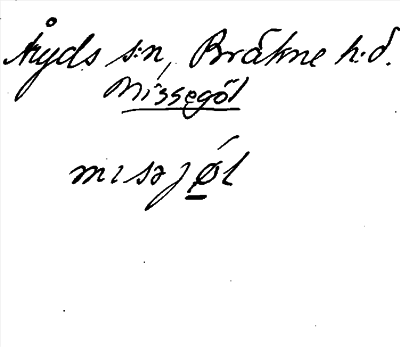 Åryds s:n, Bräkne h:d.
Missegöl
mɪsəjǿ̱l